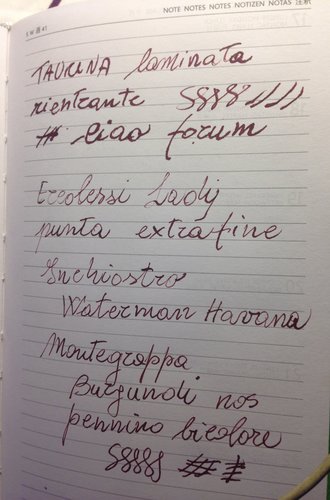 NOTE NOTES NOTES NOTIZEN NOTAS 注釈
TAURUNA laminata
rientrante
# ciao forum
Ercolessi Lady
punta extrafine
Inchiostro
Waterman Havana
Montegrappa
Burgundi nos
pennino bicolore